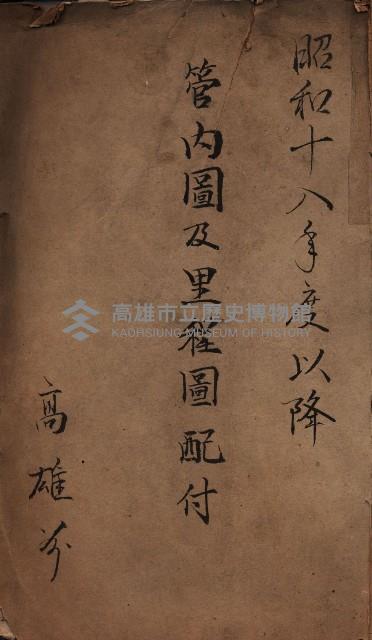 昭和十八年度以降
管内圖及里程圖配付
高雄市立歷史博物館
KAOHSIUNG MUSEUM OF HISTORY
高雄